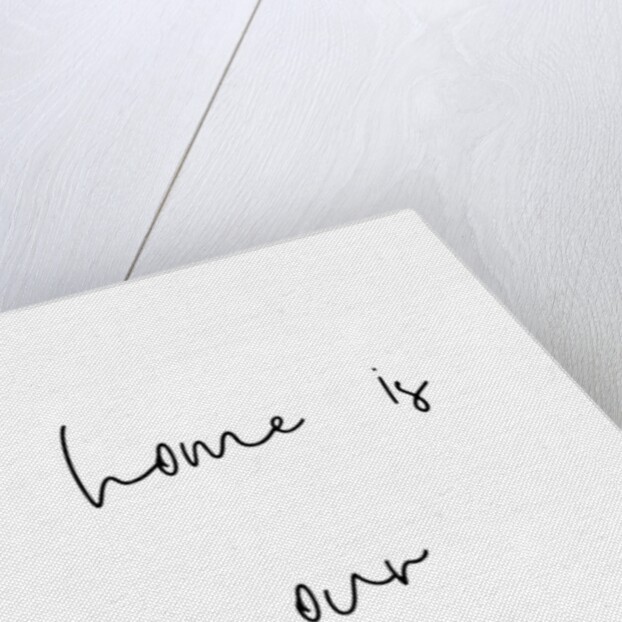 home is
our